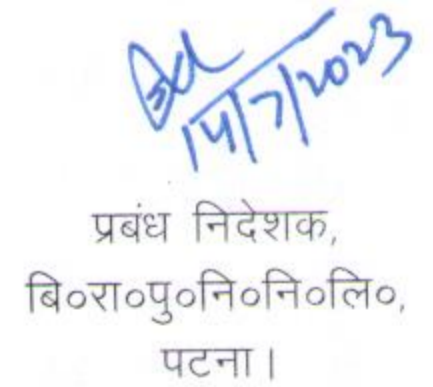 14/7/2023
प्रबंध निदेशक,
बि०रा०पु०नि०नि०लि०,
पटना।